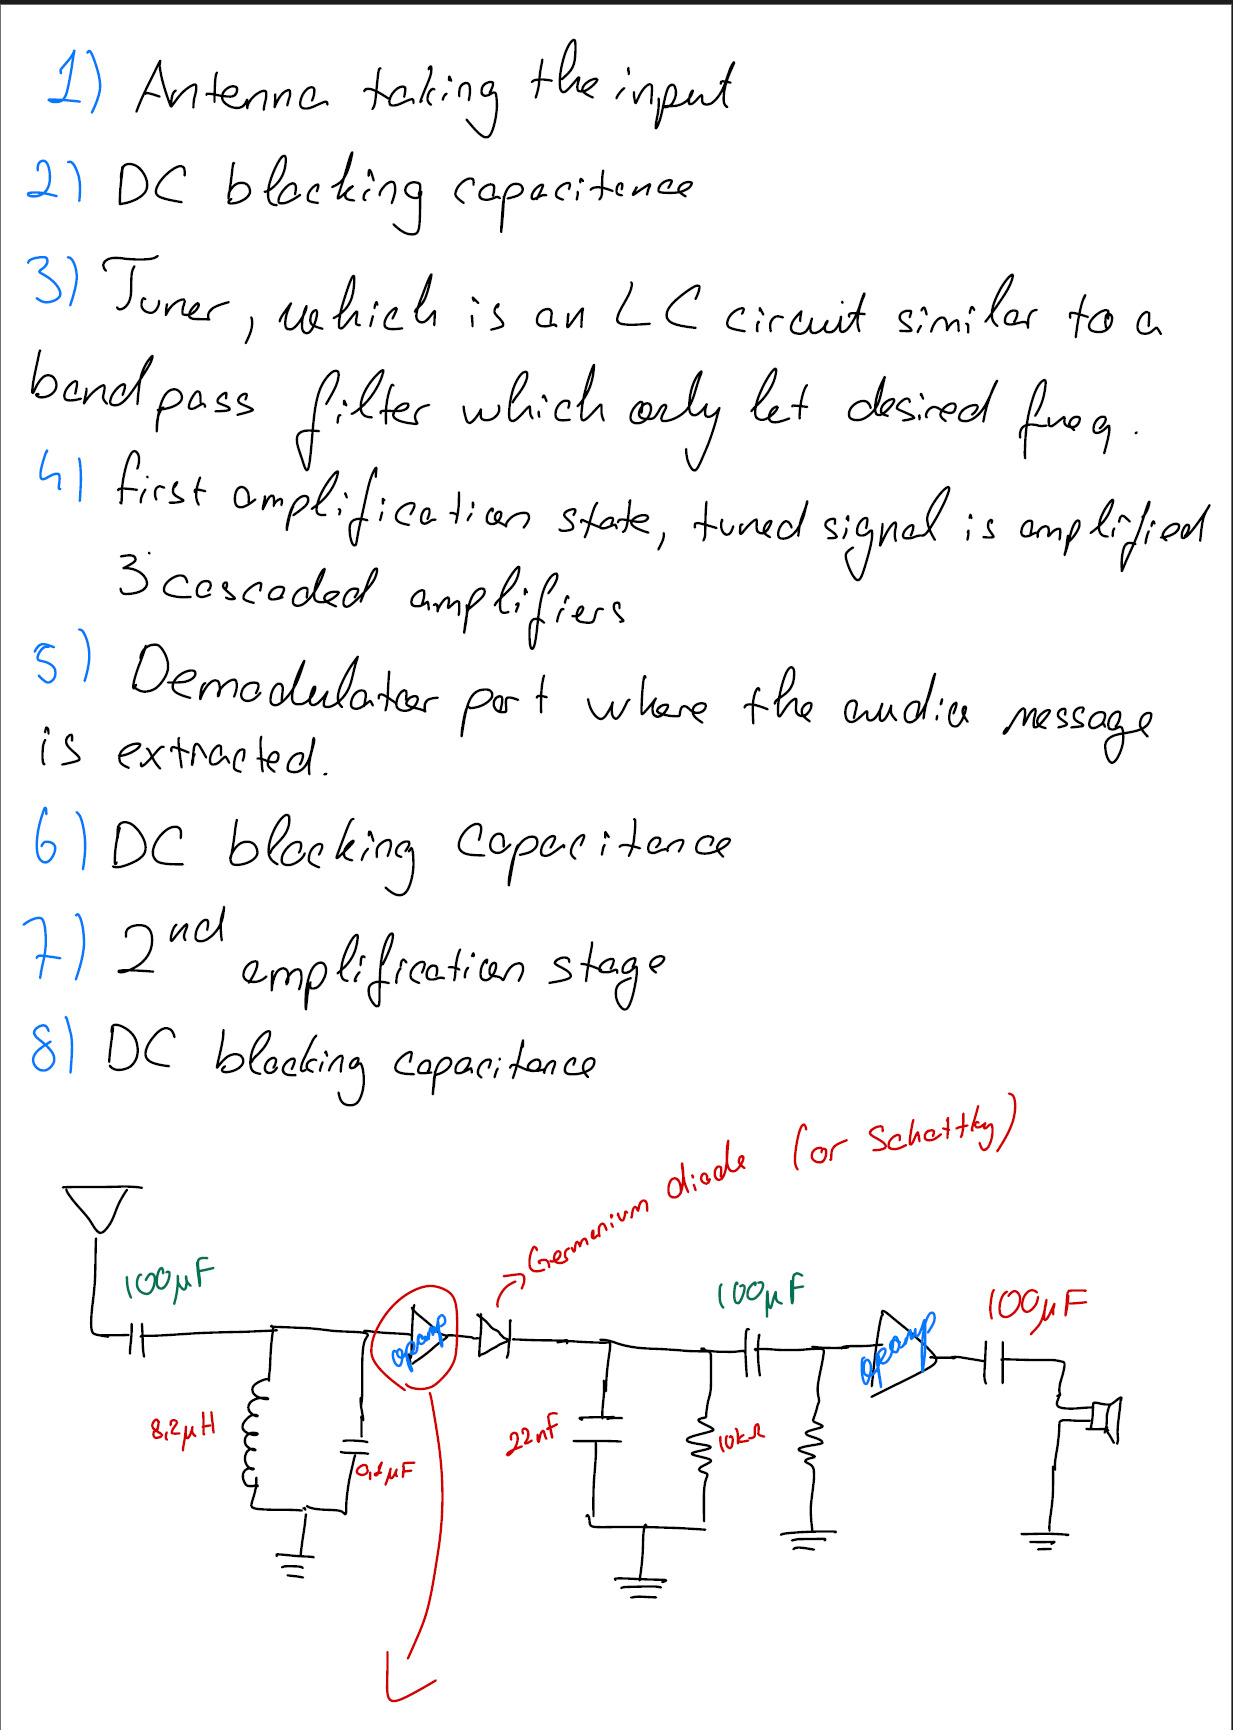 1) Antenna taking the input
2) DC blocking capacitence
3) Tuner, which is an LC circuit similar to a
band pass filter which only let desired freq.
4) first amplification state, tuned signal is amplified
3 cascaded amplifiers
5) Demodulator part where the audio message
is extracted.
6) DC blocking capacitence
7) 2nd amplification stage
8) DC blocking capacitance
Germanium diode (or Schottky)
100μF
100μF
100μF
opamp
opamp
8,2μH
0,1μF
22nf
10kΩ